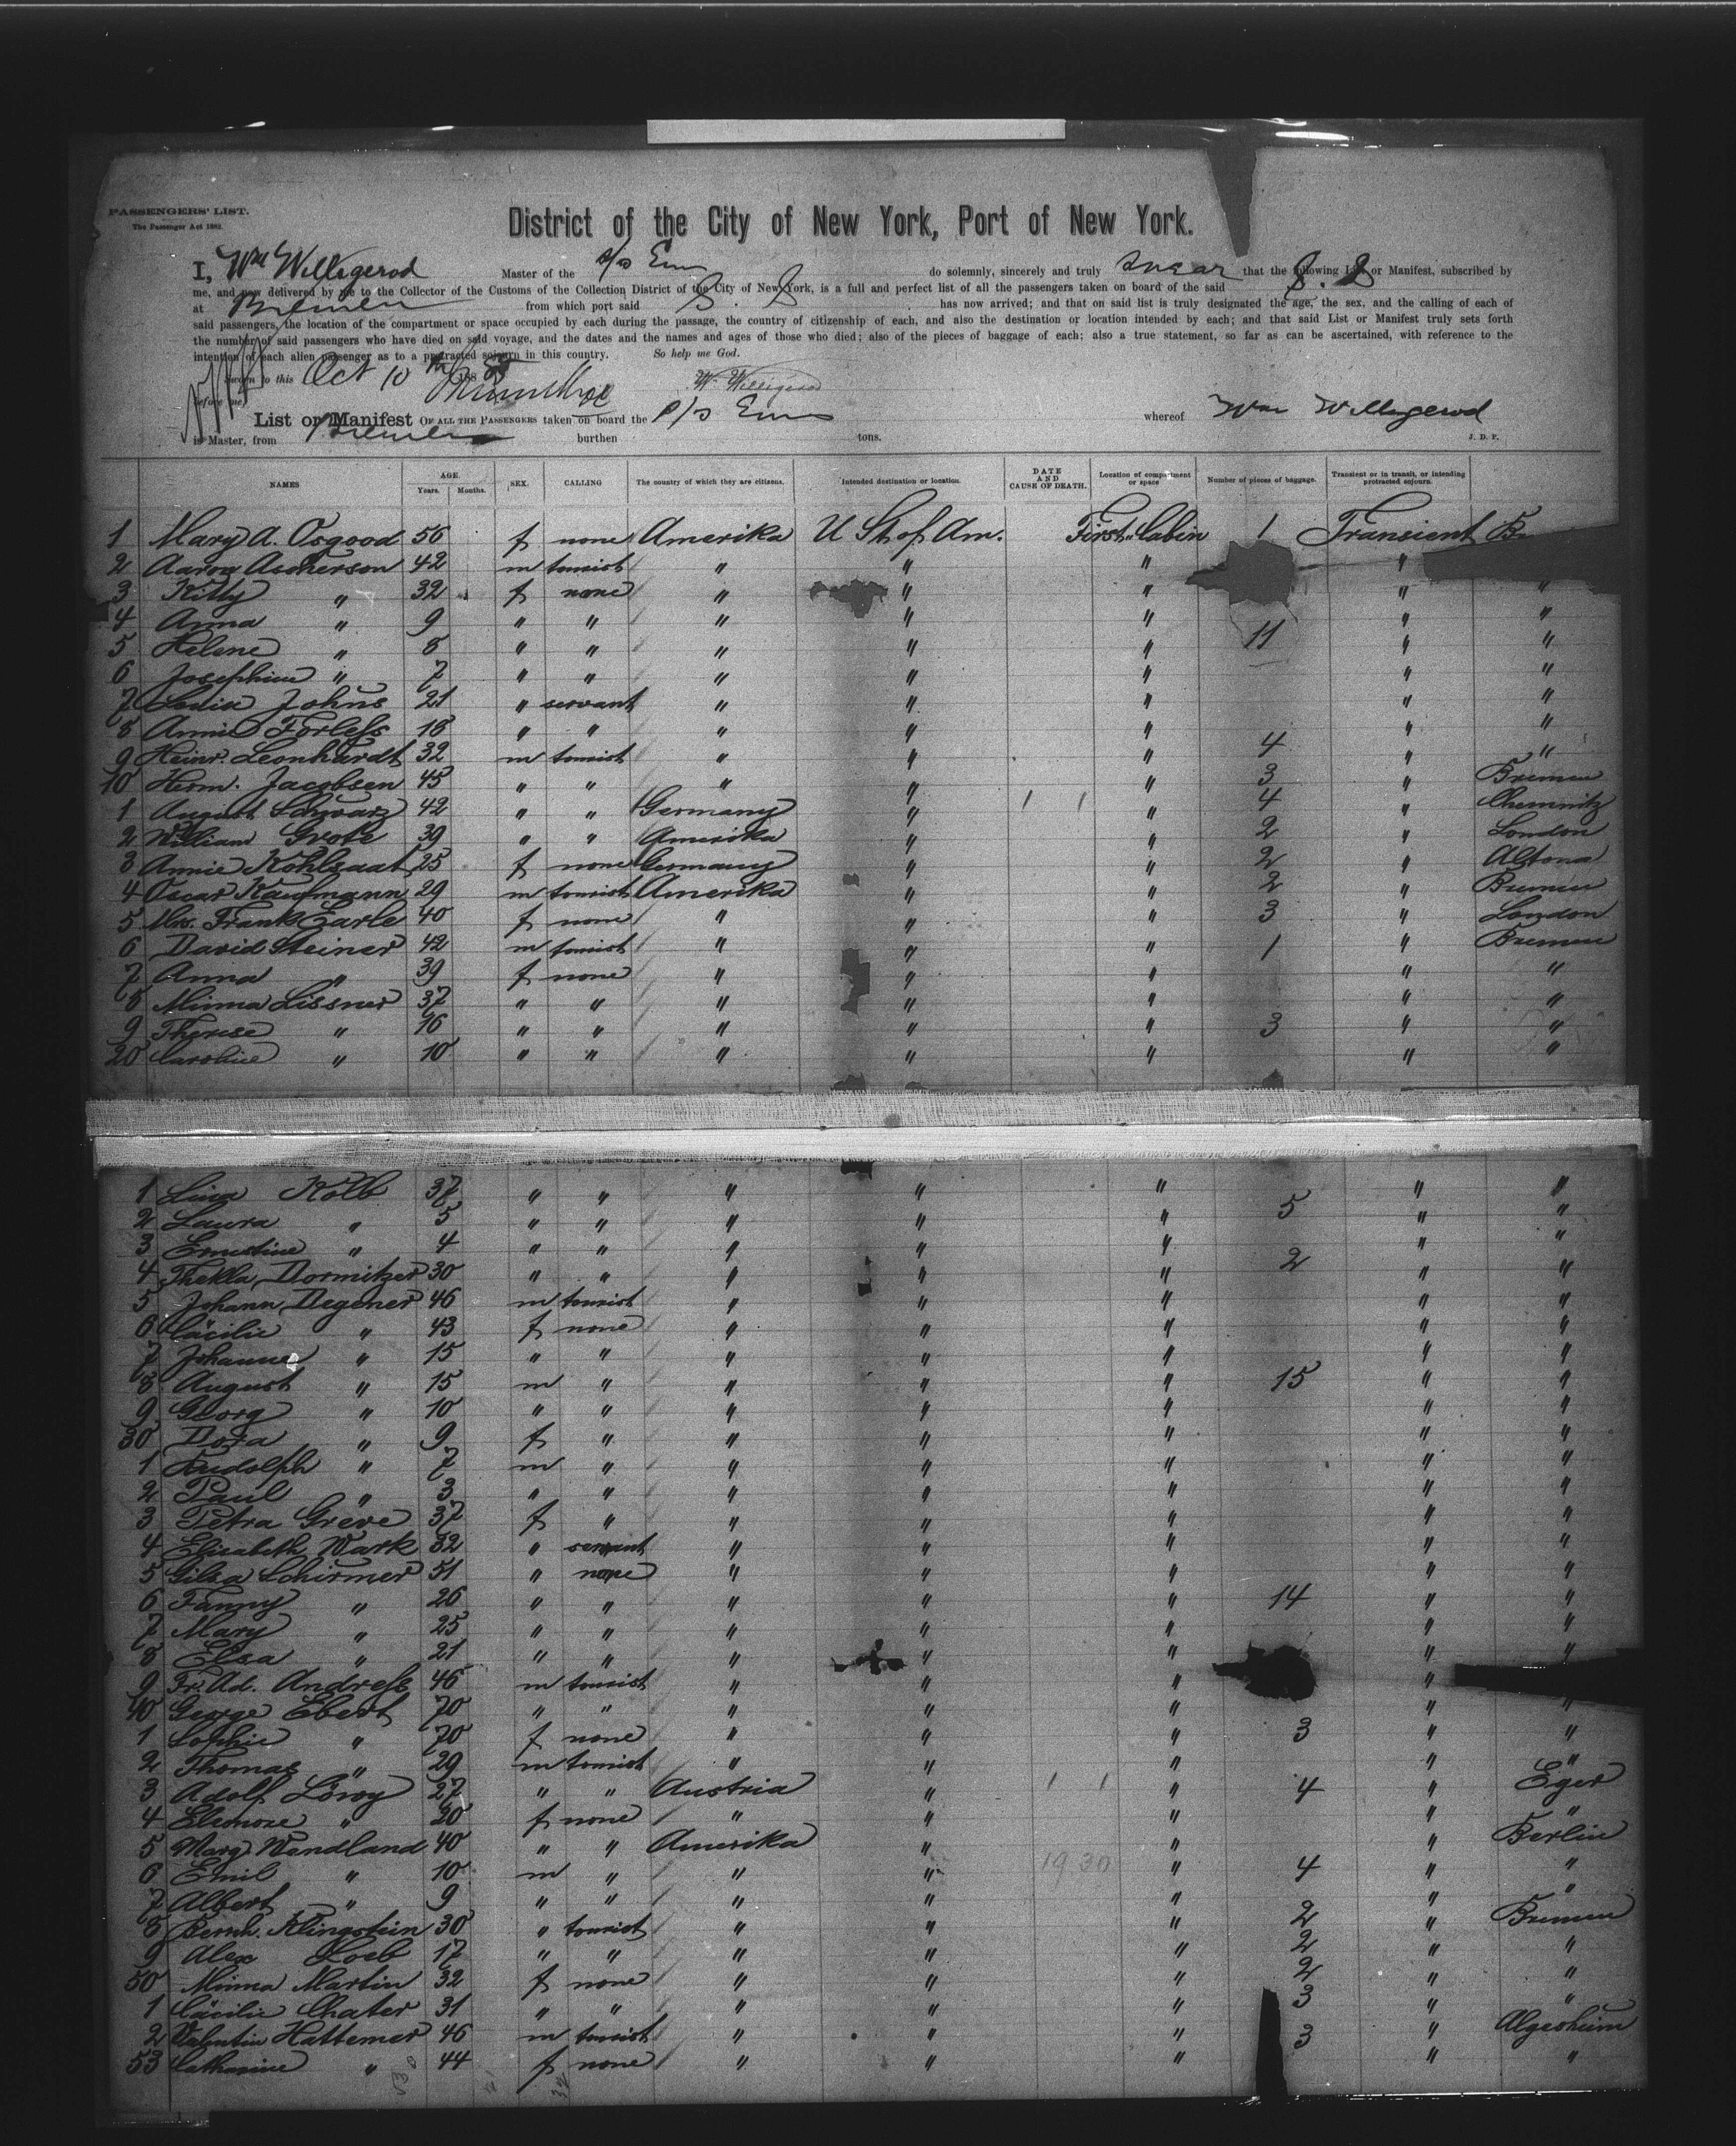 PASSENGERS' LIST.
The Passenger Act 1882.
District of the City of New York, Port of New York.
I, Wm Willigerod Master of the s/s Ems do solemnly, sincerely and truly swear that the following List or Manifest, subscribed by
me, and now delivered by me to the Collector of the Customs of the Collection District of the City of New York, is a full and perfect list of all the passengers taken on board of the said S. S
at Bremen from which port said S. S has now arrived; and that on said list is truly designated the age, the sex, and the calling of each of
said passengers, the location of the compartment or space occupied by each during the passage, the country of citizenship of each, and also the destination or location intended by each; and that said List or Manifest truly sets forth
the number of said passengers who have died on said voyage, and the dates and the names and ages of those who died; also of the pieces of baggage of each; also a true statement, so far as can be ascertained, with reference to the
intention of each alien passenger as to a protracted sojourn in this country. So help me God.
Sworn to this Oct 10th 188
before me W. Willigerod
List or Manifest OF ALL THE PASSENGERS taken on board the s/s Ems whereof Wm Willigerod
is Master, from Bremen burthen tons. J. D. F.
NAMES AGE. Years. Months. SEX. CALLING The country of which they are citizens. Intended destination or location. DATE AND CAUSE OF DEATH. Location of compartment or space Number of pieces of baggage. Transient or in transit, or intending protracted sojourn.
1 Mary A. Osgood 56 f none Amerika U St of Am. First Cabin 1 Transient
2 Aaron Ascherson 42 m tourist " " " "
3 Kitty " 32 f none " " " " "
4 Anna " 9 " " " " " " "
5 Helene " 8 " " " " " 11 " "
6 Josephine " 7 " " " " " " "
7 Louis Johns 21 " servant " " " " "
8 Annie Forless 18 " " " " " " "
9 Heinr. Leonhardt 32 m tourist " " " 4 " "
10 Herm. Jacobsen 45 " " " " " 3 " Bremen
1 August Schwarz 42 " " Germany " 1 1 " 4 " Chemnitz
2 William Grote 39 " " Amerika " " 2 " London
3 Annie Kohlsaat 25 f none Germany " " 2 " Altona
4 Oscar Kaufmann 29 m tourist Amerika " " 2 " Bremen
5 Mrs. Frank Earle 40 f none " " " 3 " London
6 David Steiner 42 m tourist " " " 1 " Bremen
7 Anna " 39 f none " " " " "
8 Minna Lissner 37 " " " " " " "
9 Therese " 16 " " " " " 3 " "
20 Caroline " 10 " " " " " " "
1 Lina Kolb 37 " " " " " 5 " "
2 Laura " 5 " " " " " " "
3 Ernestine " 4 " " " " " " "
4 Thekla Dormitzer 30 " " " " " 2 " "
5 Johann Degener 46 m tourist " " " " "
6 Cäcilie " 43 f none " " " " "
7 Johanne " 15 " " " " " " "
8 August " 15 m " " " " 15 " "
9 Georg " 10 " " " " " " "
30 Dora " 9 f " " " " " "
1 Rudolph " 7 m " " " " " "
2 Paul " 3 " " " " " " "
3 Petra Greve 37 f " " " " " "
4 Elisabeth Wark 32 " servant " " " " "
5 Gilsa Schirmer 51 " none " " " " "
6 Fanny " 26 " " " " " 14 " "
7 Mary " 25 " " " " " " "
8 Elsa " 21 " " " " " " "
9 Fr. Ad. Andress 46 m tourist " " " "
40 George Ebert 70 " " " " " " "
1 Sophie " 70 f none " " " 3 " "
2 Thomas " 29 m tourist " " " " "
3 Adolf Löwy 27 " " Austria " 1 1 " 4 " Eger
4 Eleonore " 20 f none " " " " "
5 Marg. Wendland 40 " " Amerika " " " Berlin
6 Emil " 10 m " " " 19 30 " 4 " "
7 Albert " 9 " " " " " " "
8 Bernh. Klingstein 30 " tourist " " " 2 " Bremen
9 Alex Loeb 17 " " " " " 2 " "
50 Minna Martin 32 f none " " " 2 " "
1 Cäcilie Chater 31 " " " " " 3 " "
2 Valentin Hattemer 46 m tourist " " " 3 " Algesheim
53 Catharine " 44 f none " " " " "